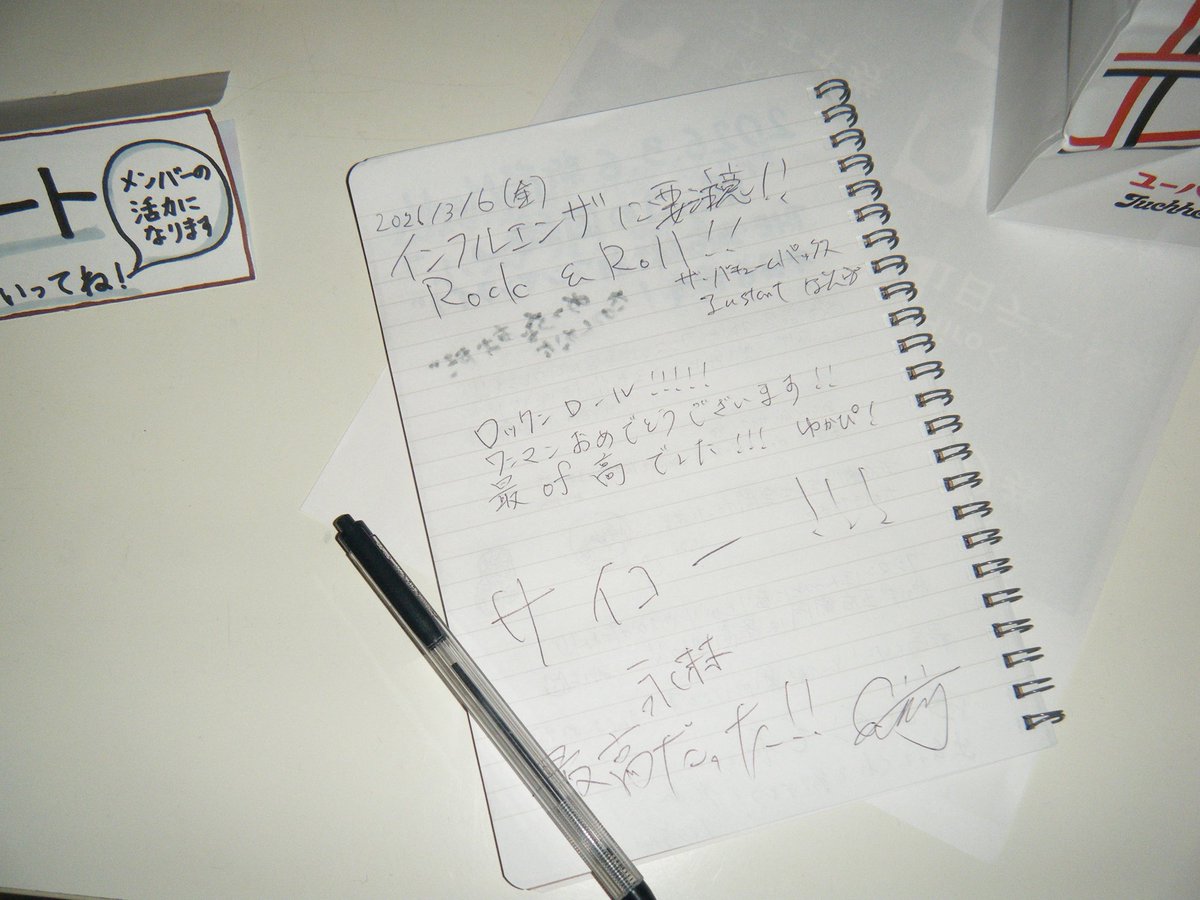 ート
メンバーの
活力に
なります
いってね!
2026/3/6(金)
インフルエンザに要注意!!
Rock & Roll!!
ザ・バキュームパックス
Instant なんぷ
ロックンロール!!!!!
ワンマンおめでとうございます!!
最 of 高 でした!!! ゆかぴ!
サイコー !!!
永林
最高だった!!
ユーハ
Juchhe